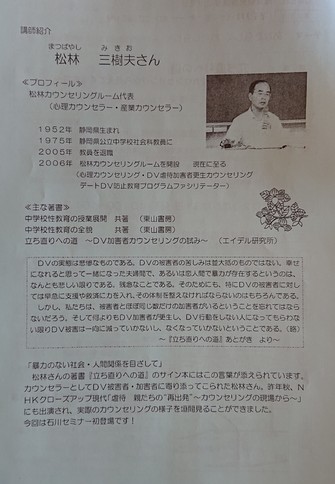 講師紹介
まつばやし　みきお
松林　三樹夫さん
≪プロフィール≫
松林カウンセリングルーム代表
（心理カウンセラー・産業カウンセラー）
1952年　静岡県生まれ
1975年　静岡県公立中学校社会科教員に
2005年　教員を退職
2006年　松林カウンセリングルームを開設　現在に至る
（心理カウンセリング・DV虐待加害者更生カウンセリング
デートDV防止教育プログラムファシリテーター）
≪主な著書≫
中学校性教育の授業展開　共著　（東山書房）
中学校性教育の全貌　共著　（東山書房）
立ち直りへの道　～DV加害者カウンセリングの試み～　（エイデル研究所）
DVの実態は悲惨なものである。DVの被害者の苦しみは並大抵のものではない。幸せ
になれると思って一緒になった夫婦間で、あるいは恋人間で暴力が存在するというのは、
なんとも悲しい限りである。残念なことである。そのためにも、特にDVの被害者に対し
ては早急に支援や救済に力を入れ、その体制を整えなければならないのはもちろんである。
しかし、私たちは、被害者とほぼ同じだけの加害者がいることを忘れてはな
らないだろう。そして何よりもDV加害者が更生し、DV行動をしない人になってもらわな
い限りDV被害は一向に減っていかないし、なくなっていかないということである。（略）
～『立ち直りへの道』あとがき　より～
「暴力のない社会・人間関係を目ざして」
松林さんの著書『立ち直りへの道』のサイン本にはこの言葉が添えられています。
カウンセラーとしてDV被害者・加害者に寄り添ってこられた松林さん、昨年秋、N
HKクローズアップ現代「虐待　親たちの“再出発”～カウンセリングの現場から～」
にも出演され、実際のカウンセリングの様子を垣間見ることができました。
今回は石川セミナー初登場です！